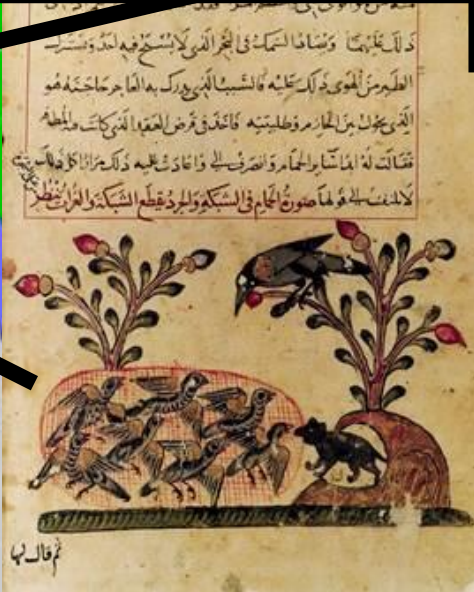 ذلك عليهما ويصاد السمك في البحر الذي لا يسبح فيه احد ويستنزل
الطير من الهوى ذلك عليه فالسبب الذي يدرك به العاجز حاجته هو
الذي يحول بين الحازم وطلبته فاخذ في قرض العقد الذي كانت فيه
فقالت له ابدا بساير الحمام وانصرف الي واعادت عليه ذلك مرارا كل ذلك
لا يلتفت الى قولها صورة الحمام في الشبكة والجرد يقطع الشبكة والغراب ينظر
ثم قال لها